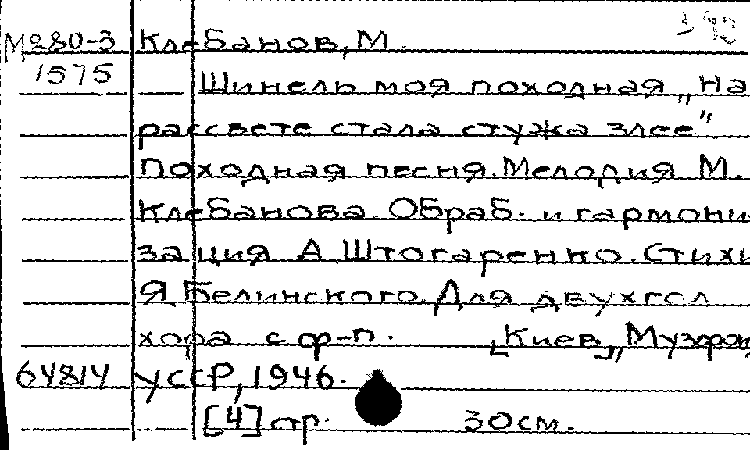 М280-3 Клебанов, М.
1575 Шинель моя походная „На
рассвете стала стужа злее".
Походная песня. Мелодия М.
Клебанова. Обраб. и гармони
зация А. Штогаренко. Стихи
Я. Белинского. Для двухгол
хора с ф-п. [Киев], Музфон
64814 УССР, 1946.
[4] стр. 30 см.